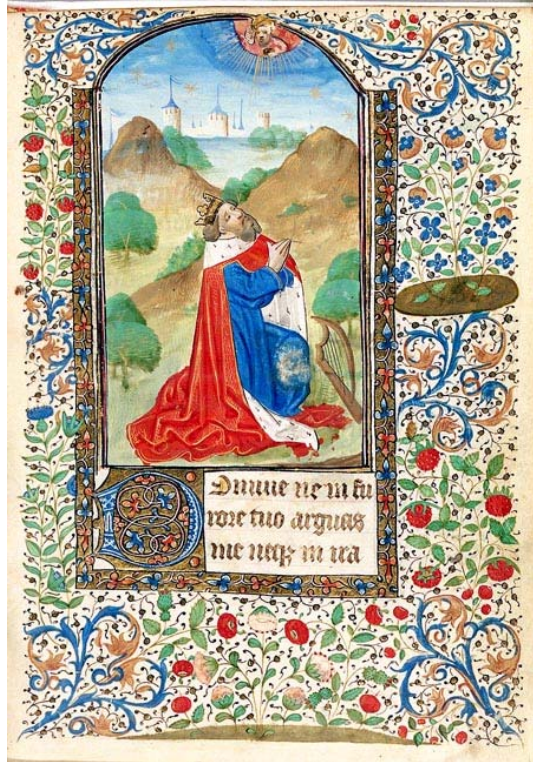 DOmine ne in fu
rore tuo arguas
me neqꝫ in ira